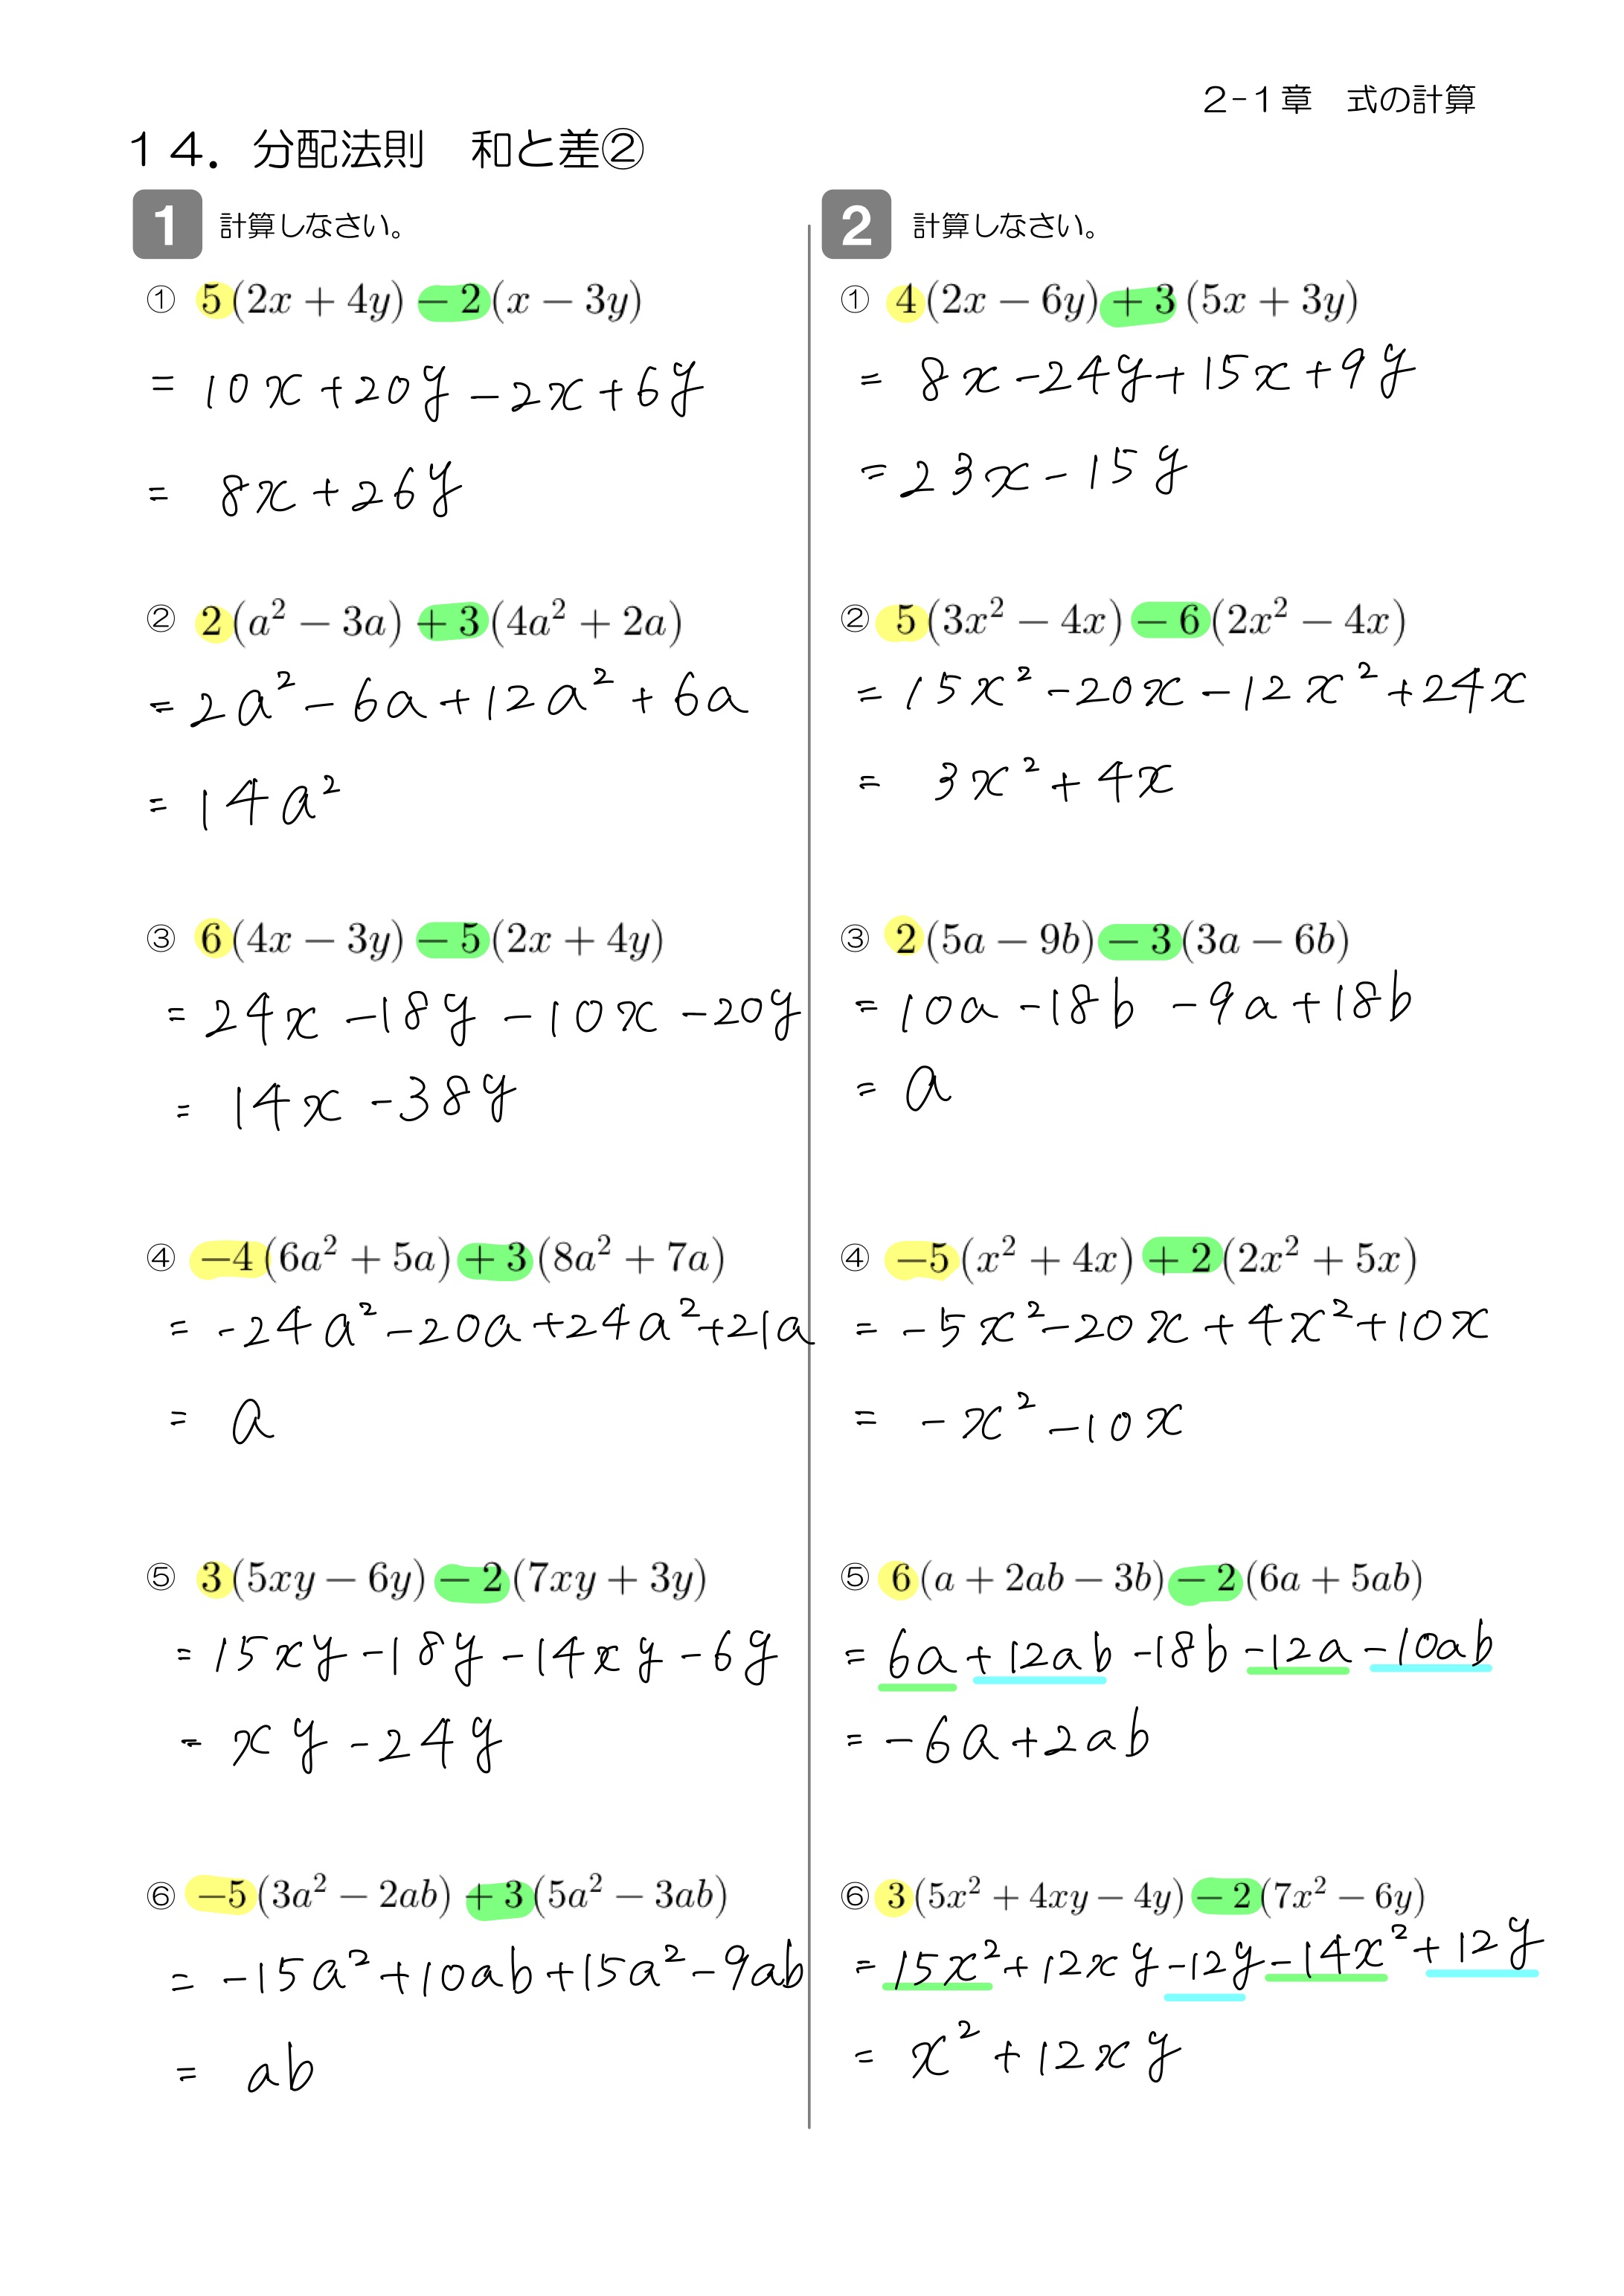 2-1章　式の計算
14．分配法則　和と差②
1 計算しなさい。
① 5(2x + 4y) − 2(x − 3y)
= 10x + 20y − 2x + 6y
= 8x + 26y
② 2(a² − 3a) + 3(4a² + 2a)
= 2a² − 6a + 12a² + 6a
= 14a²
③ 6(4x − 3y) − 5(2x + 4y)
= 24x − 18y − 10x − 20y
= 14x − 38y
④ −4(6a² + 5a) + 3(8a² + 7a)
= −24a² − 20a + 24a² + 21a
= a
⑤ 3(5xy − 6y) − 2(7xy + 3y)
= 15xy − 18y − 14xy − 6y
= xy − 24y
⑥ −5(3a² − 2ab) + 3(5a² − 3ab)
= −15a² + 10ab + 15a² − 9ab
= ab
2 計算しなさい。
① 4(2x − 6y) + 3(5x + 3y)
= 8x − 24y + 15x + 9y
= 23x − 15y
② 5(3x² − 4x) − 6(2x² − 4x)
= 15x² − 20x − 12x² + 24x
= 3x² + 4x
③ 2(5a − 9b) − 3(3a − 6b)
= 10a − 18b − 9a + 18b
= a
④ −5(x² + 4x) + 2(2x² + 5x)
= −5x² − 20x + 4x² + 10x
= −x² − 10x
⑤ 6(a + 2ab − 3b) − 2(6a + 5ab)
= 6a + 12ab − 18b − 12a − 10ab
= −6a + 2ab
⑥ 3(5x² + 4xy − 4y) − 2(7x² − 6y)
= 15x² + 12xy − 12y − 14x² + 12y
= x² + 12xy